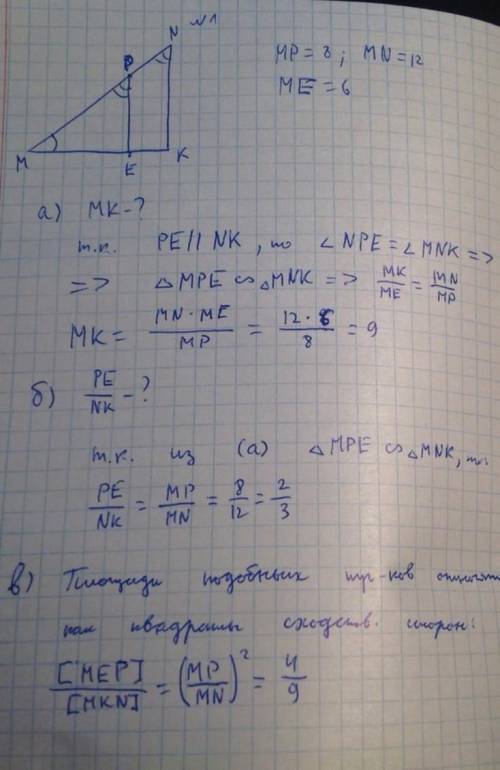 N №1
P
MP = 8 ; MN = 12
ME = 6
M E K
а) MK - ?
т.к. PE || NK, то ∠NPE = ∠MNK =>
=> △MPE ∽ △MNK => MK/ME = MN/MP
MK = MN · ME / MP = 12 · 6 / 8 = 9
б) PE/NK - ?
т.к. из (а) △MPE ∽ △MNK, то:
PE/NK = MP/MN = 8/12 = 2/3
в) Площади подобных тр-ков
как квадраты сходств. сторон:
[MEP]/[MKN] = (MP/MN)² = 4/9